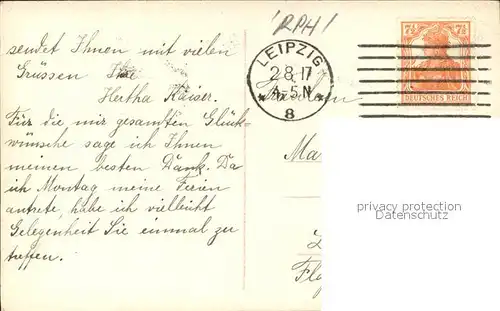 sendet Ihnen mit vielen
Grüssen Ihre
Hertha Kaiser.
Für die mir gesandten Glück-
wünsche sage ich Ihnen
meinen besten Dank. Da
ich Montag meine Ferien
antrete, habe ich vielleicht
Gelegenheit Sie einmal zu
treffen.
LEIPZIG
2 8 17
4-5.N
* 8 *
7½ 7½
DEUTSCHES REICH
privacy protection
Datenschutz